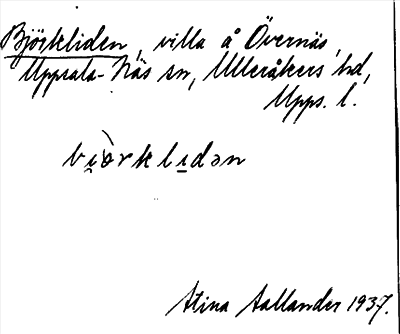 Björkliden, villa å Övernäs,
Uppsala-Näs sn, Ulleråkers hd,
Upps. l.
bi̯ò̀rklı̱dən
Stina Aallander 1937.